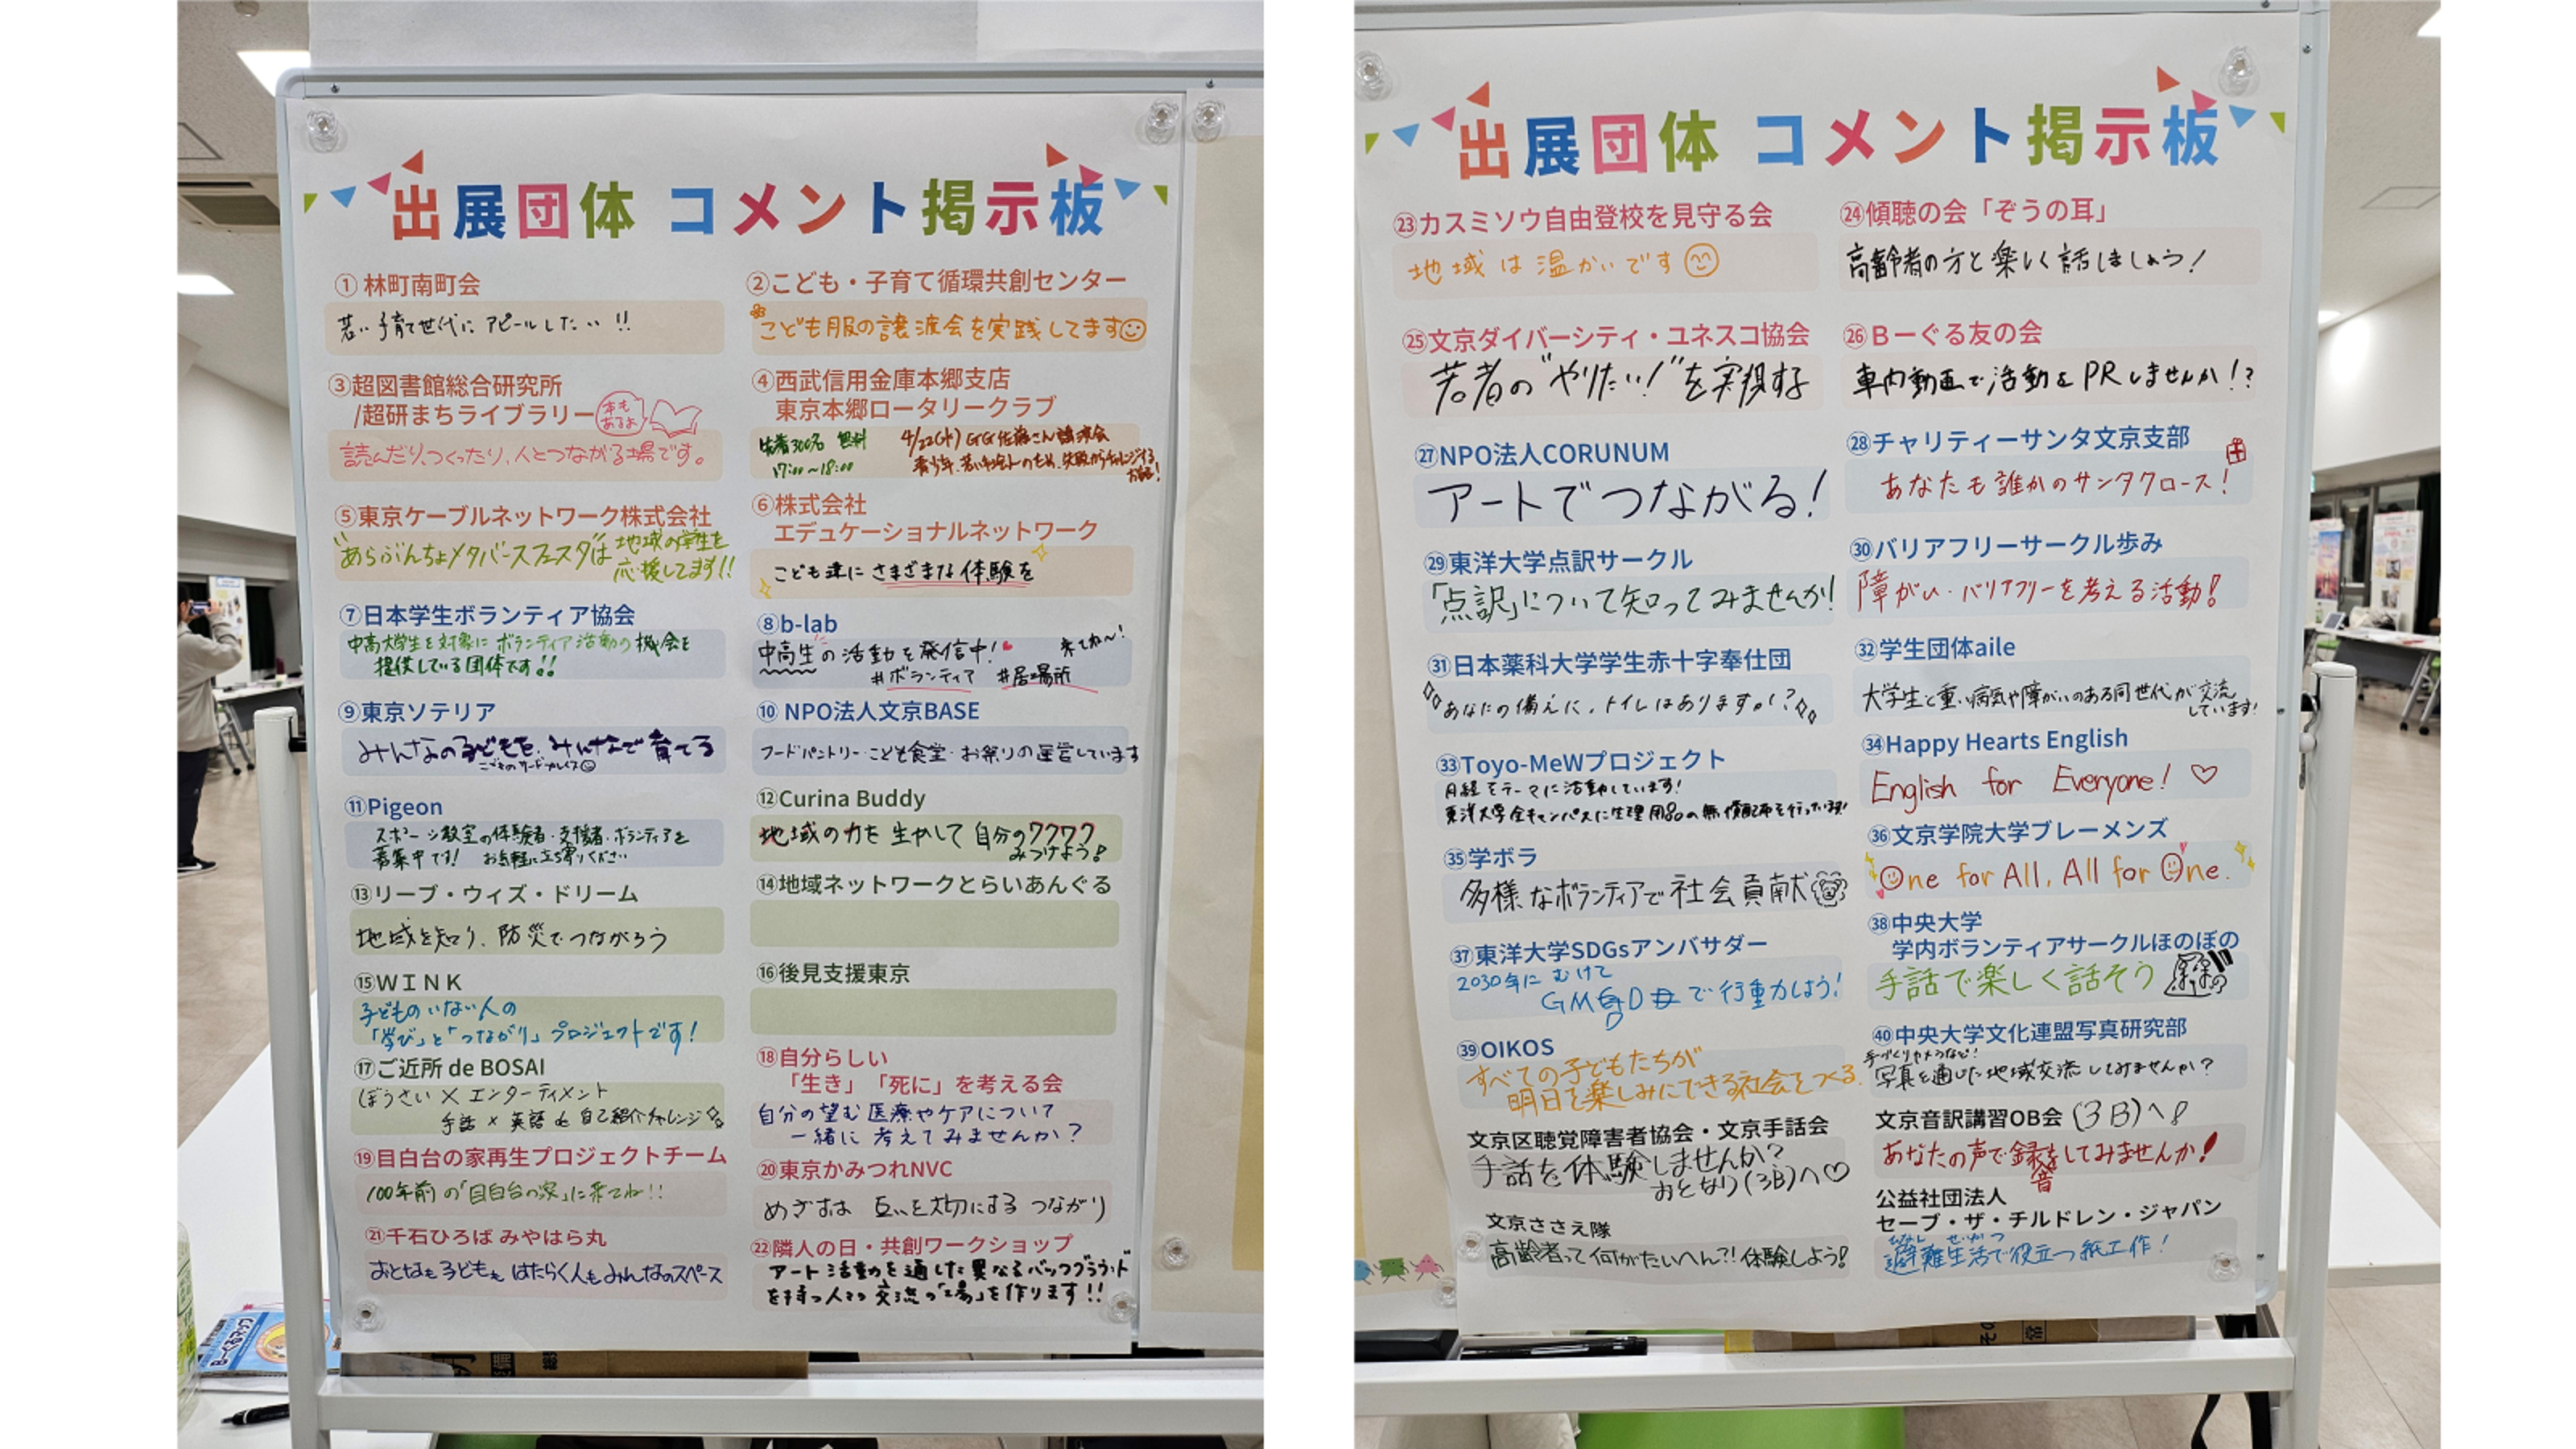 出展団体 コメント掲示板
① 林町南町会
若い子育て世代に アピールしたい !!
②こども・子育て循環共創センター
こども服の譲渡会を実践してます
③超図書館総合研究所
/超研まちライブラリー
本も
あるよ
読んだり、つくったり、人とつながる場です。
④西武信用金庫本郷支店
東京本郷ロータリークラブ
先着300名 無料
17:00〜18:00
4/22(水) GG佐藤さん講演会
⑤東京ケーブルネットワーク株式会社
"あらぶんちょメタバースフェスタ"は 地域の学生を
応援してます!!
⑥株式会社
エデュケーショナルネットワーク
こども達に さまざまな体験を
⑦日本学生ボランティア協会
中高大学生を対象に ボランティア活動の機会を
提供している団体です!!
⑧b-lab
中高生の活動を発信中! 来てね〜!
#ボランティア #居場所
⑨東京ソテリア
みんなの子どもを、みんなで育てる
こどものサードプレイス
⑩ NPO法人文京BASE
フードパントリー・こども食堂・お祭りの運営しています
⑪Pigeon
スポーツ教室の体験者・支援者・ボランティアを
募集中です! お気軽に立ち寄りください
⑫Curina Buddy
地域の力を 生かして 自分のワクワク
みつけよう!
⑬リーブ・ウィズ・ドリーム
地域を知り、防災でつながろう
⑭地域ネットワークとらいあんぐる
⑮ＷＩＮＫ
子どものいない人の
「学び」と「つながり」プロジェクトです!
⑯後見支援東京
⑰ご近所 de BOSAI
ぼうさい × エンターティメント
手話 × 英語 de 自己紹介チャレンジ
⑱自分らしい
「生き」「死に」を考える会
自分の望む医療やケアについて
一緒に 考えてみませんか?
⑲目白台の家再生プロジェクトチーム
100年前の「目白台の家」に来てね!!
⑳東京かみつれNVC
めざすは 互いを大切にする つながり
㉑千石ひろば みやはら丸
おとなも子どもも はたらく人もみんなのスペース
㉒隣人の日・共創ワークショップ
アート活動を通した異なるバックグラウンド
を持つ人々の交流の「場」を作ります!!
出展団体 コメント掲示板
㉓カスミソウ自由登校を見守る会
地域は温かいです
㉔傾聴の会「ぞうの耳」
高齢者の方と楽しく話しましょう!
㉕文京ダイバーシティ・ユネスコ協会
若者の"やりたい!"を実現する
㉖Ｂーぐる友の会
車内動画で活動をPRしませんか!?
㉗NPO法人CORUNUM
アートでつながる!
㉘チャリティーサンタ文京支部
あなたも誰かのサンタクロース!
㉙東洋大学点訳サークル
「点訳」について知ってみませんか!
㉚バリアフリーサークル歩み
障がい・バリアフリーを考える活動!
㉛日本薬科大学学生赤十字奉仕団
あなたの備えに、トイレはありますか?
㉜学生団体aile
大学生と重い病気や障がいのある同世代が交流
しています!
㉝Toyo-MeWプロジェクト
月経をテーマに活動しています!
東洋大学全キャンパスに生理用品の無償配布を行っています!
㉞Happy Hearts English
English for Everyone! ♡
㉟学ボラ
多様なボランティアで社会貢献
㊱文京学院大学ブレーメンズ
One for All, All for One.
㊲東洋大学SDGsアンバサダー
2030年に むけて
で行動しよう!
㊳中央大学
学内ボランティアサークルほのぼの
手話で楽しく話そう
㊴OIKOS
すべての子どもたちが
明日を楽しみにできる社会をつくる
㊵中央大学文化連盟写真研究部
手づくりカメラなど!
写真を通じた地域交流してみませんか?
文京区聴覚障害者協会・文京手話会
手話を体験しませんか?
おとなり(3B)へ♡
文京音訳講習OB会 (3B)へ!
あなたの声で録音をしてみませんか!
文京ささえ隊
高齢者って何がたいへん?!体験しよう!
公益社団法人
セーブ・ザ・チルドレン・ジャパン
ひなん せいかつ
避難生活で役立つ紙工作!